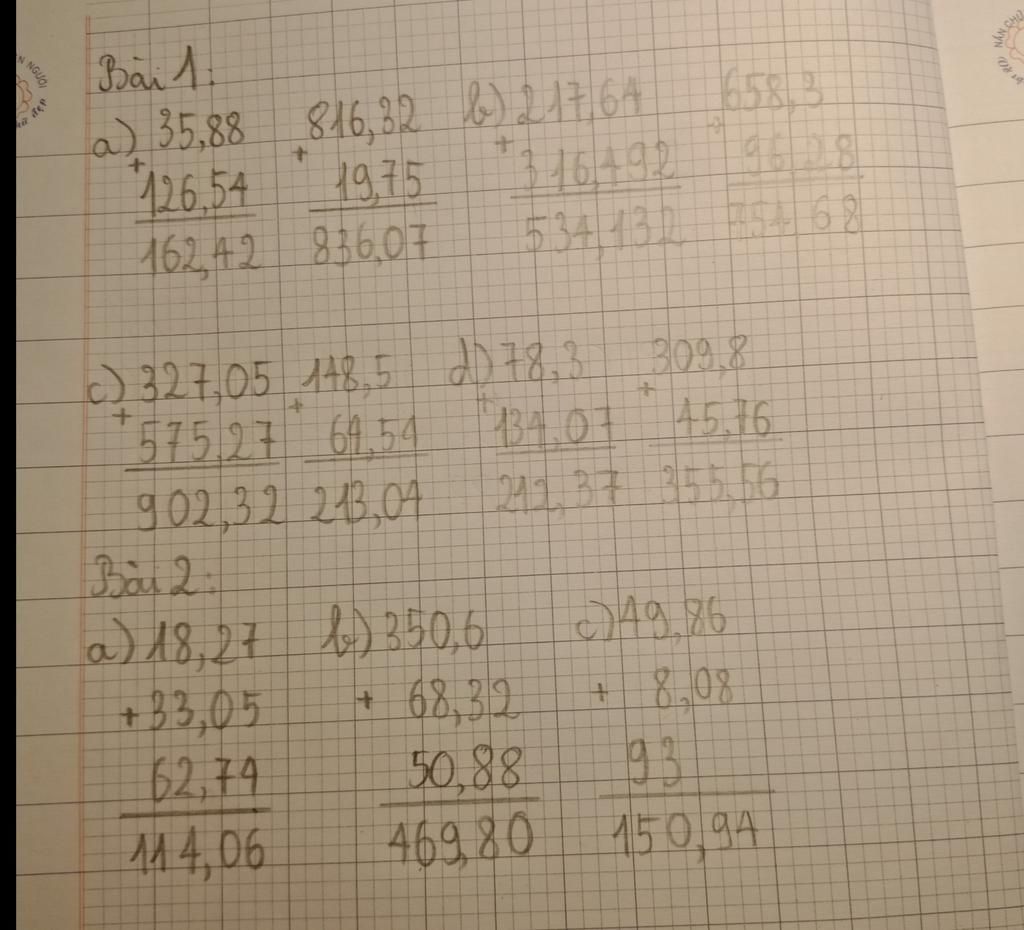 Bài 1:
a) 35,88 816,32 b) 217,64 658,3
+ + + +
126,54 19,75 316,492 96,28
162,42 836,07 534,132 754,68
c) 327,05 148,5 d) 78,3 309,8
+ + + +
575,27 64,54 134,07 45,76
902,32 213,04 212,37 355,56
Bài 2:
a) 18,27 b) 350,6 c) 49,86
+ 33,05 + 68,32 + 8,08
62,74 50,88 93
114,06 469,80 150,94